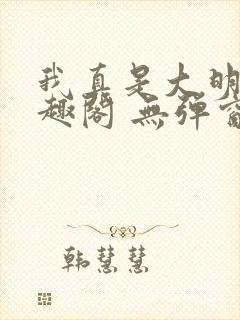 我真是大明
趣阁 無弹窗
韩慧慧